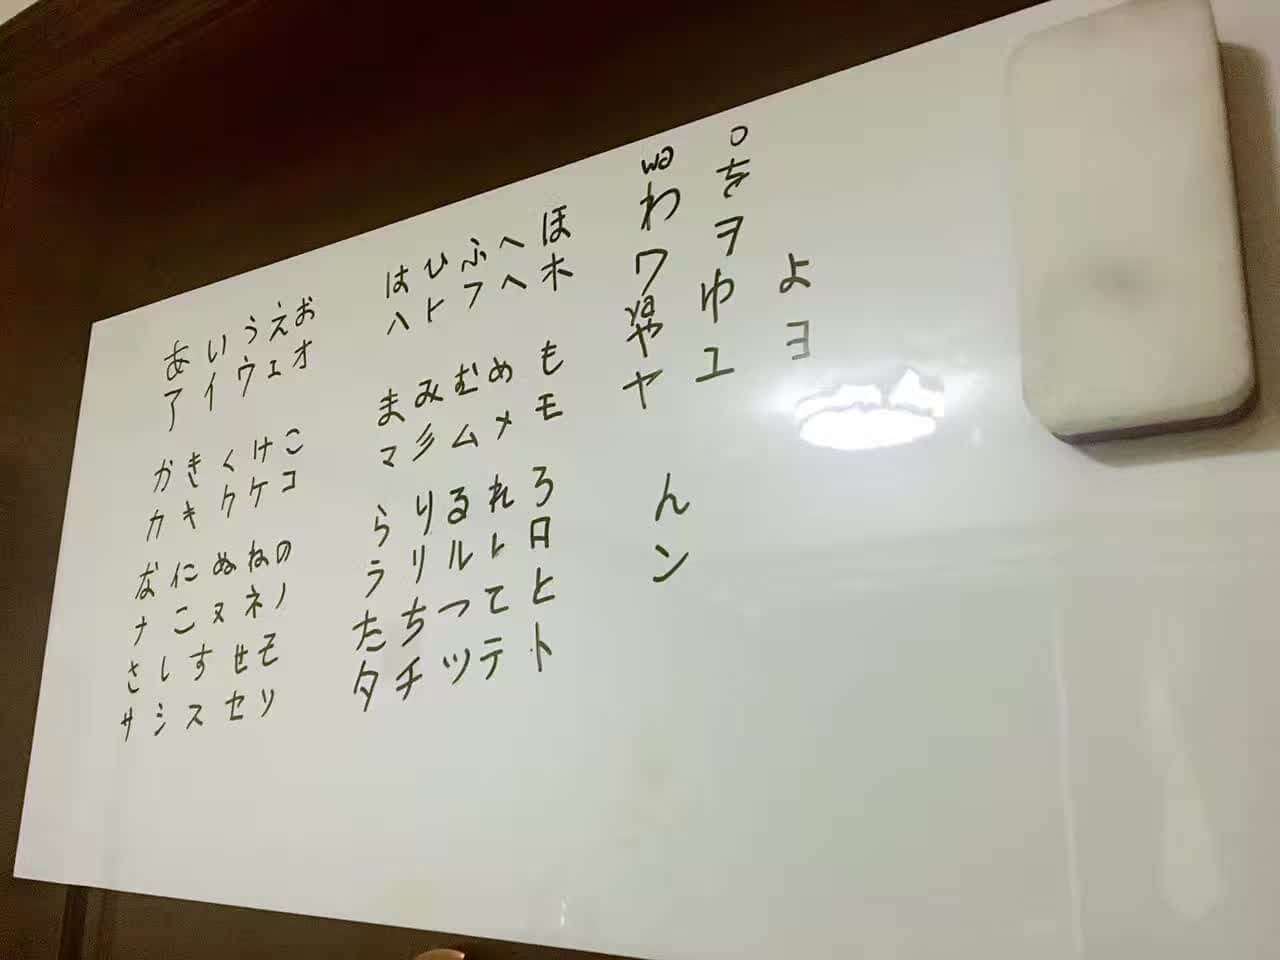 あいうえお
アイウェオ
かきくけこ
カキクケコ
なにぬねの
ナこヌネノ
さしすせそ
サシスセソ
はひふへほ
ハトフヘホ
まみむめも
マ彡ムメモ
らりるれろ
ラリルト日
たちつてと
タチツテト
wa o
わを
ワヲ
ya
やゆよ
ヤユヨ
ん
ン